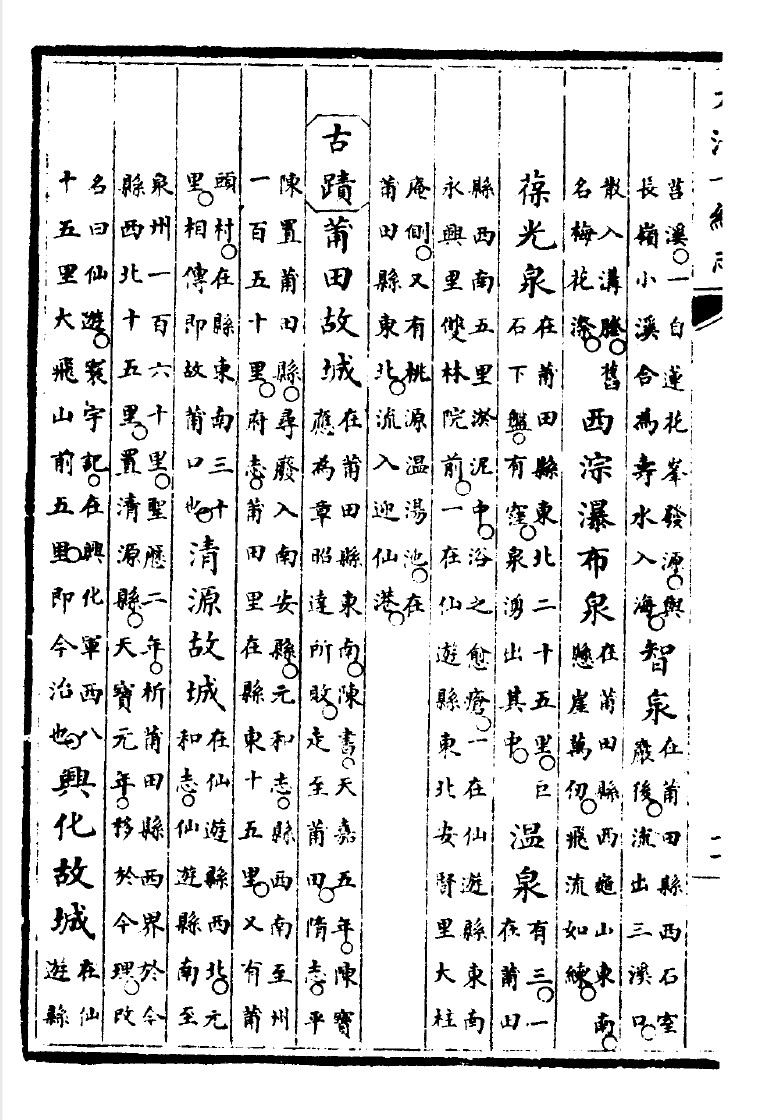 莒溪一自蓮花峯發源與長嶺小溪合為壽水入海智泉在莆田縣西石室巖後流出三溪口
散入溝塍舊名梅花漈西淙瀑布泉在莆田縣西龜山東南懸崖萬仞飛流如練
葆光泉在莆田縣東北二十五里巨石下盤有窪泉湧出其中温泉有三一在莆田
縣西南五里淤泥中浴之愈瘡一在仙遊縣東南永興里雙林院前一在仙遊縣東北安賢里大柱
庵側又有桃源温湯池在莆田縣東北流入迎仙港
古蹟莆田故城在莆田縣東南陳書天嘉五年陳寶應為章昭達所敗走至莆田隋志平
陳置莆田縣尋廢入南安縣元和志縣西南至州一百五十里府志莆田里在縣東十五里又有莆
頭村在縣東南三十里相傳即故莆口也清源故城在仙遊縣西北元和志仙遊縣南至
泉州一百六十里聖曆二年析莆田縣西界於今縣西北十五里置清源縣天寶元年移於今理改
名曰仙遊寰宇記在興化軍西八十五里大飛山前五里即今治也興化故城在仙遊縣